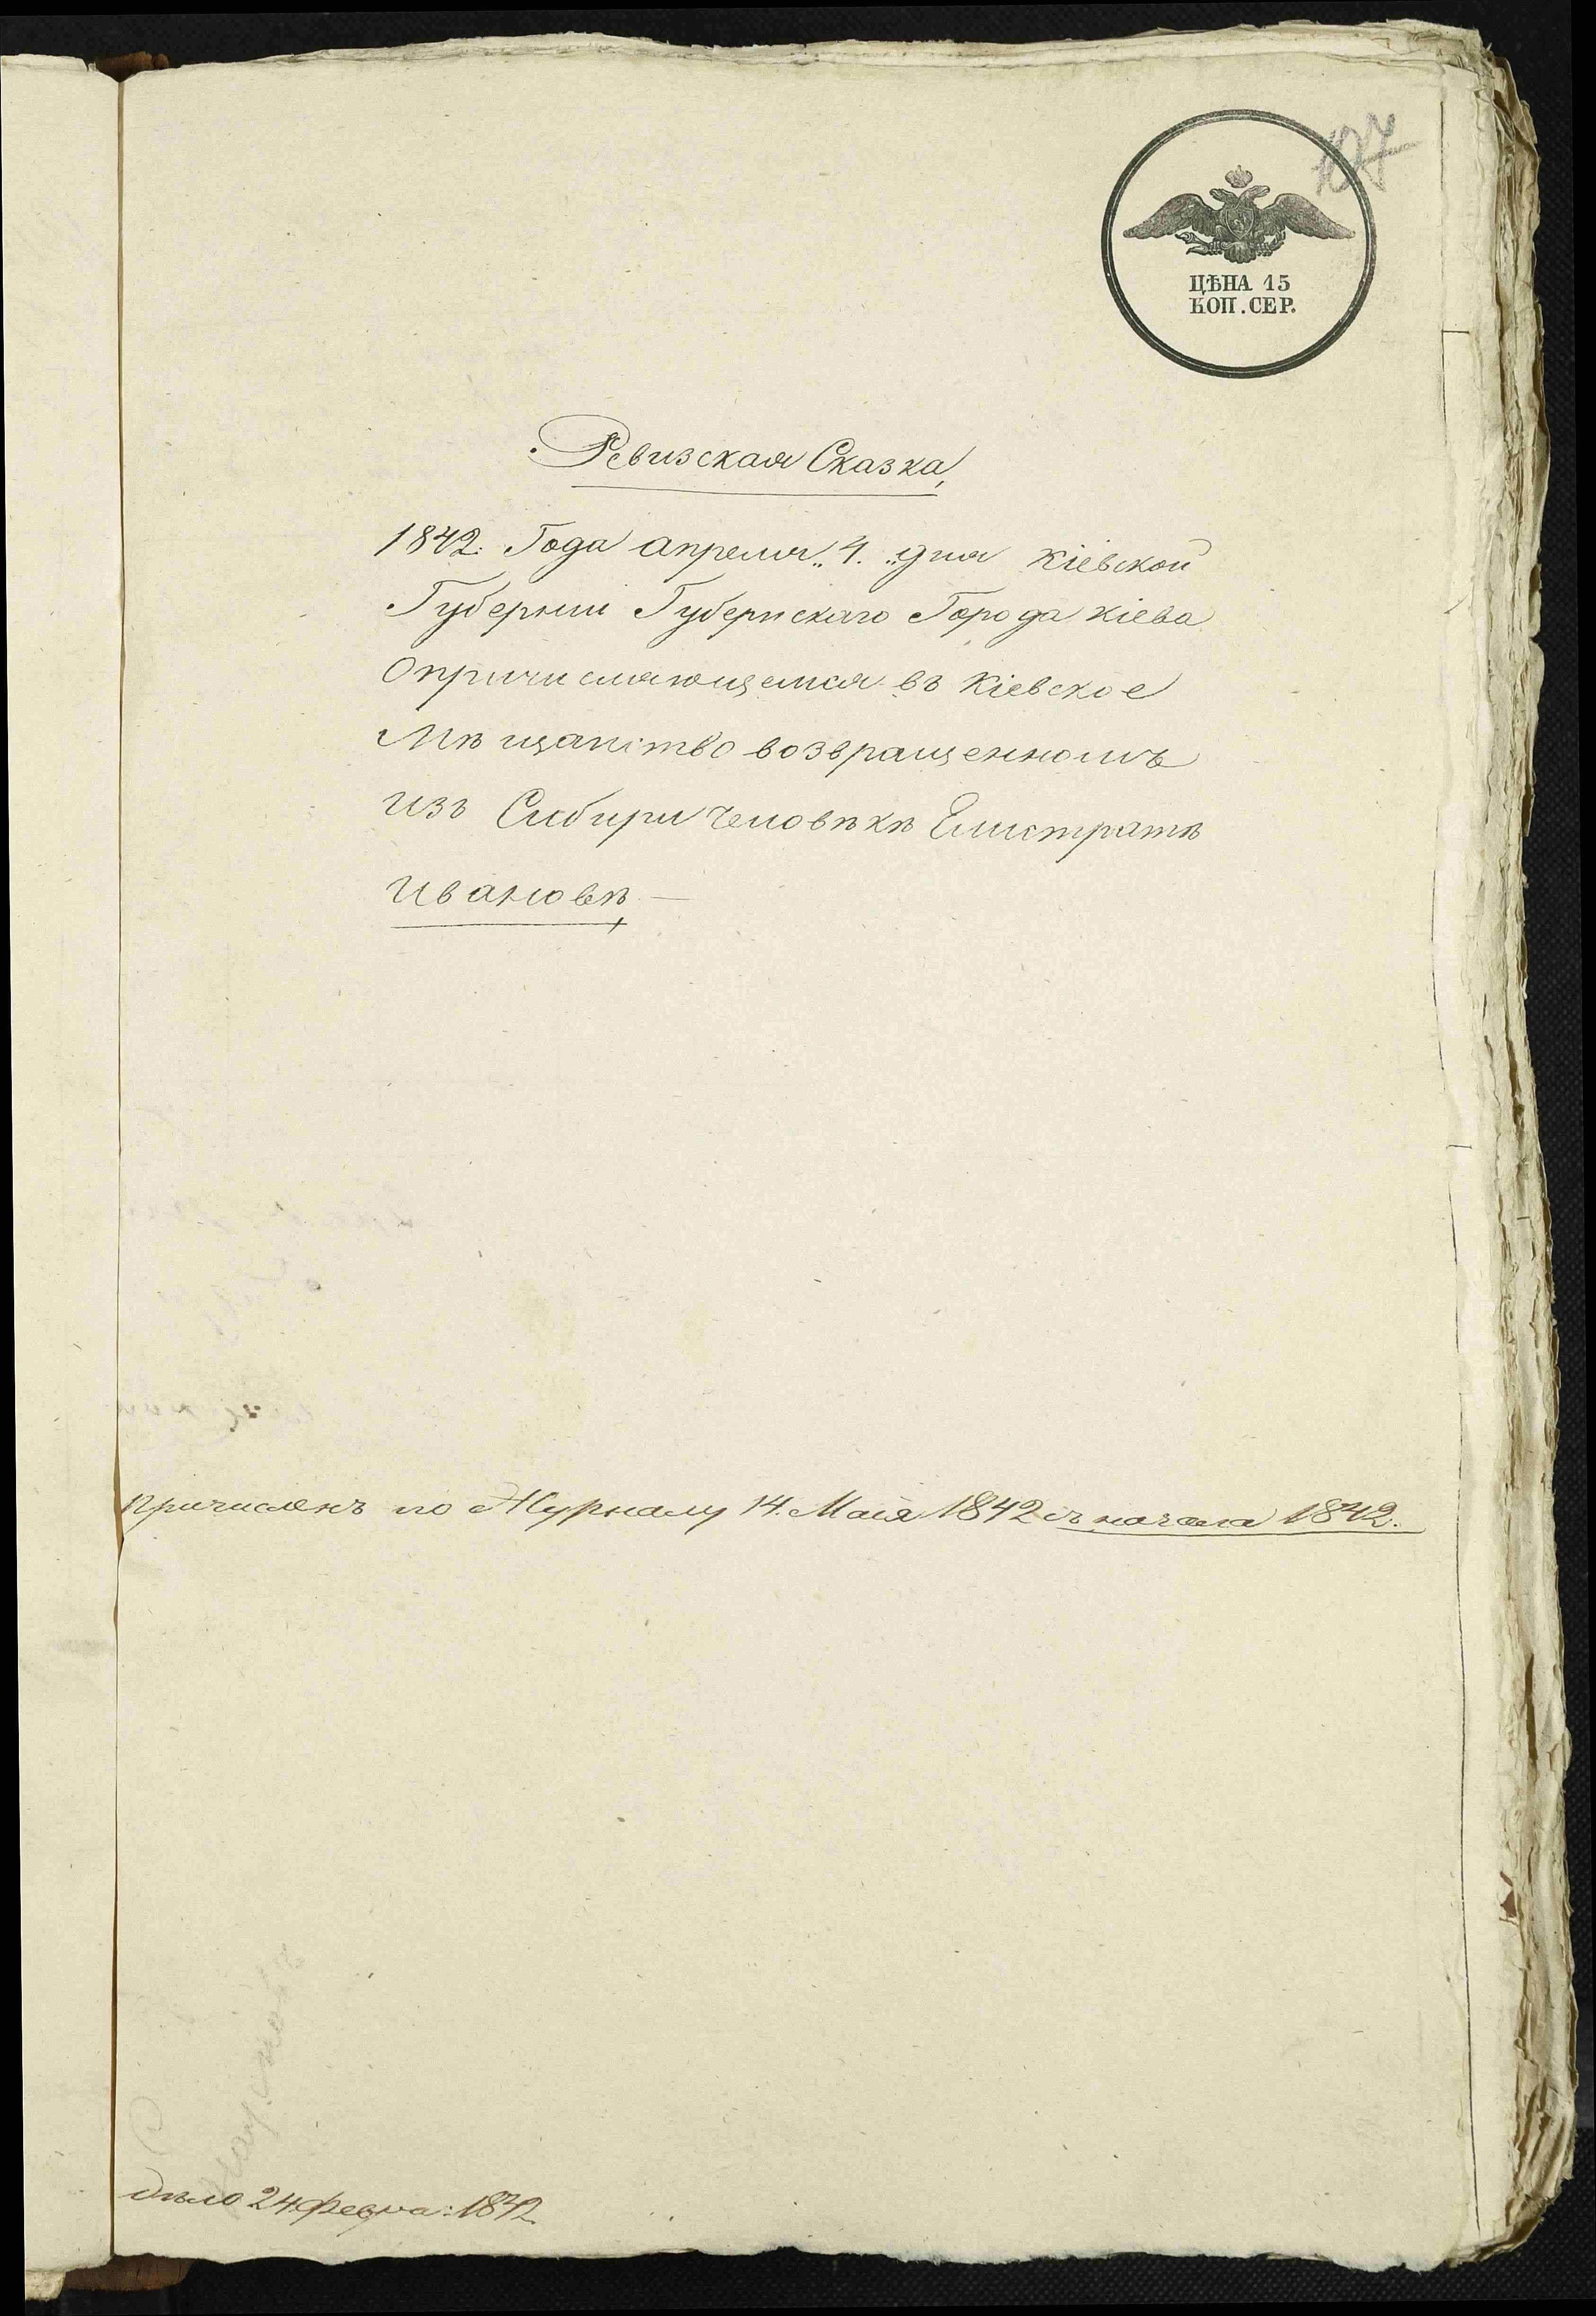 107
ЦѢНА 15
КОП. СЕР.
Ревизская Сказка,
1842: Года апреля „4.„ дня Кіевской
Губерніи Губернскаго Города Кіева
О причисляющемся въ Кіевское
Мѣщанство возвращенномъ
изъ Сибири человѣкѣ Елистратѣ
Ивановѣ —
Причисленъ по Журналу 14. Маія 1842 съ начала 1842.
дѣло 24 Февра: 1842